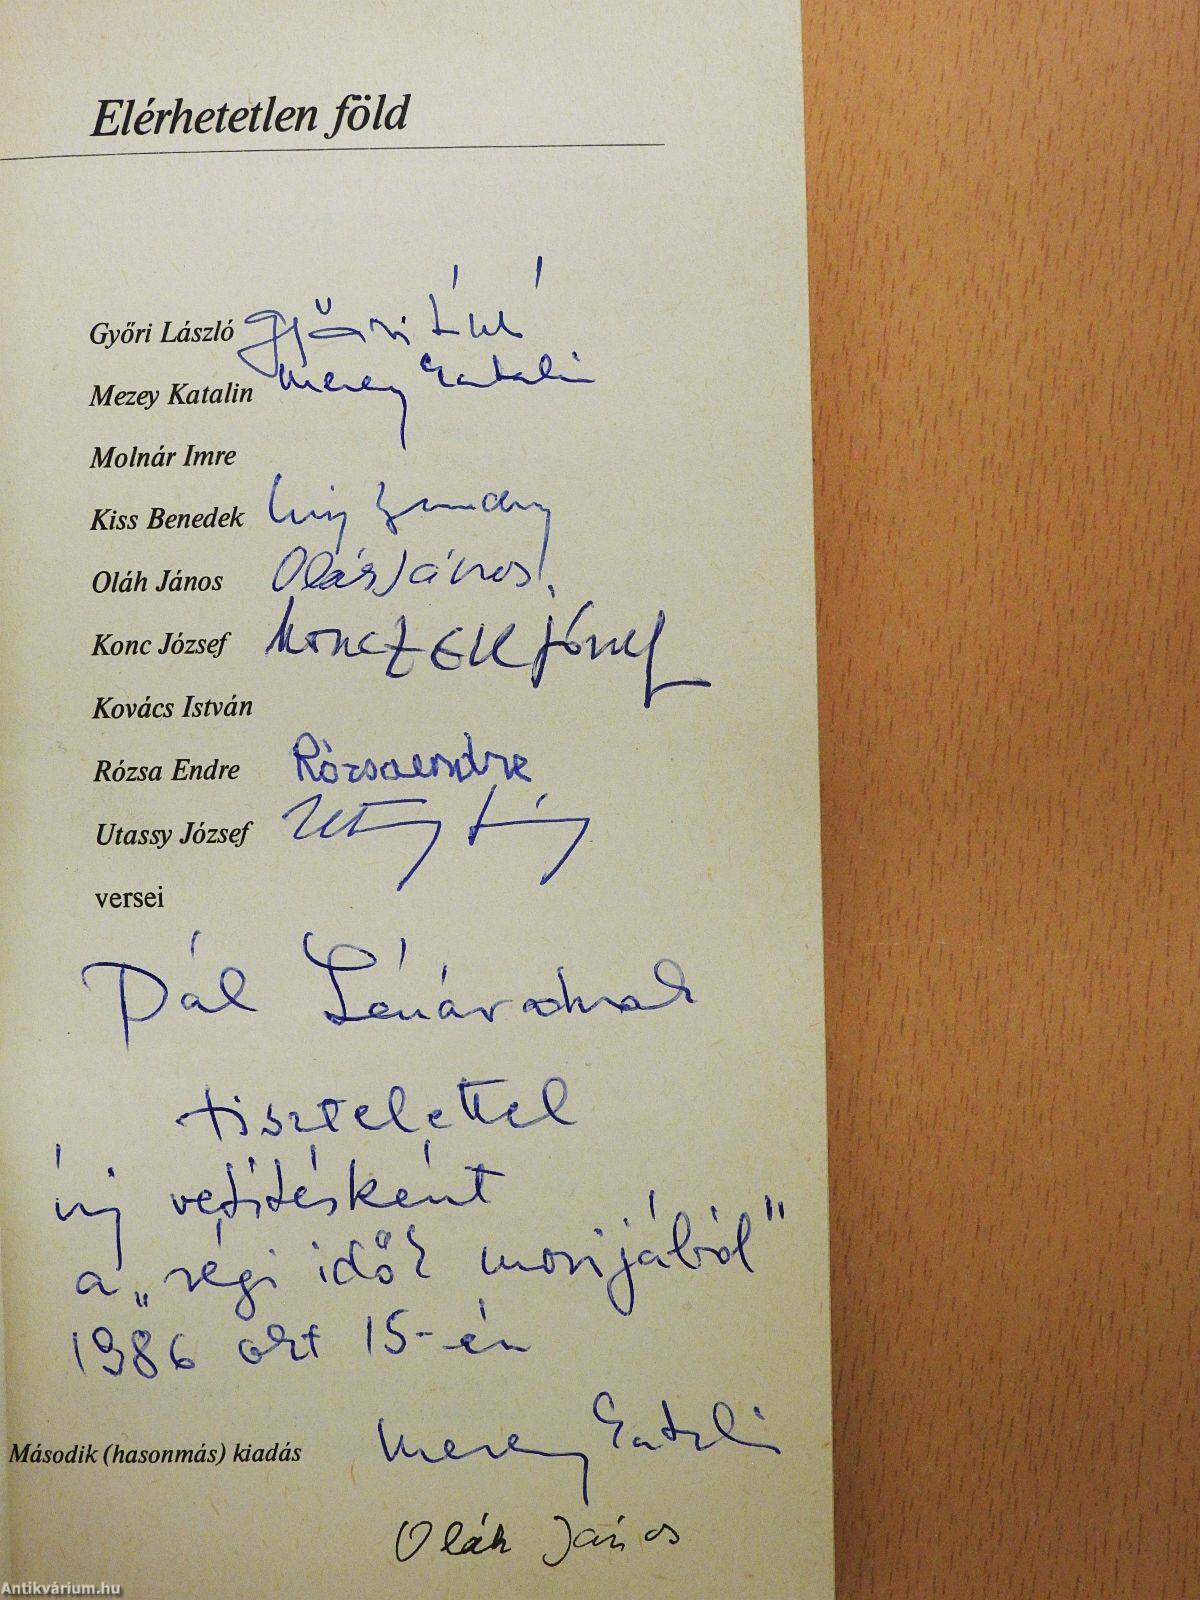 Elérhetetlen föld
Győri László Győri László
Mezey Katalin Mezey Katalin
Molnár Imre
Kiss Benedek Kiss Benedek
Oláh János Oláh János.
Konc József KONCZEK József
Kovács István
Rózsa Endre Rózsaendre
Utassy József Utassy József
versei
Pál Lénárdnak
tisztelettel
új vetítésként
a „régi idők mozijából"
1986 okt 15-én
Második (hasonmás) kiadás Mezey Katalin
Oláh János
Antikvárium.hu